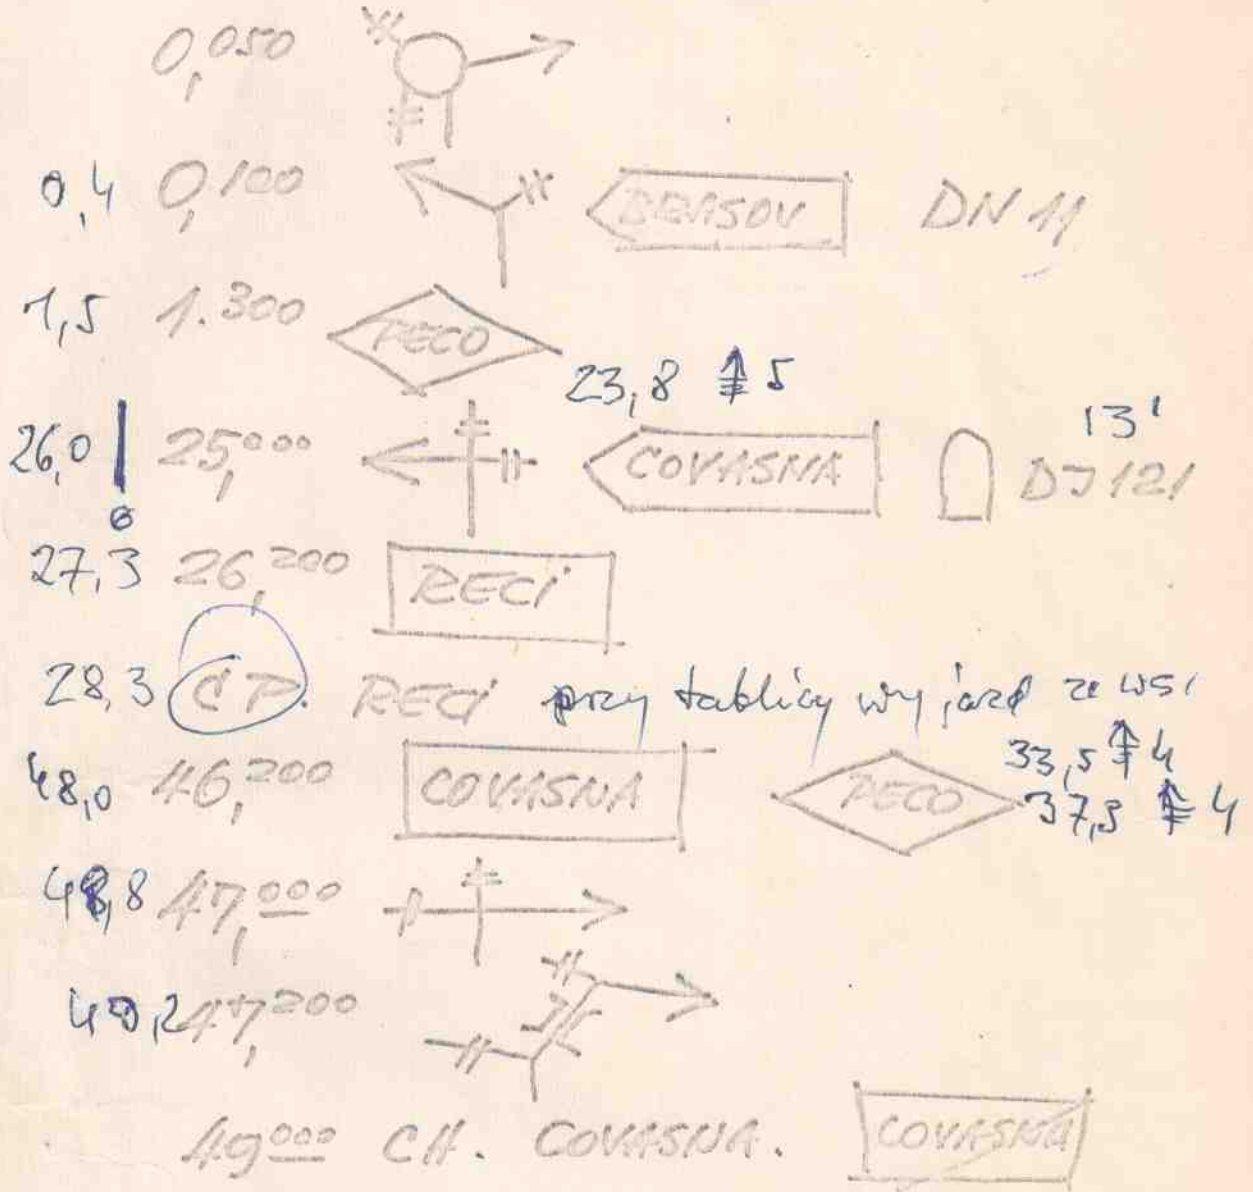 0,050
0,4 0,100 BRASOV DN 11
1,5 1.300 PECO
23,8 5
26,0 25,000 COVASNA 13' DJ 121
27,3 26,200 RECI
28,3 CP. RECI przy tablicy wyjazd ze wsi
48,0 46,200 COVASNA PECO 33,5 4
37,3 4
48,8 47,000
49,2 47,200
49000 CH. COVASNA. COVASNA